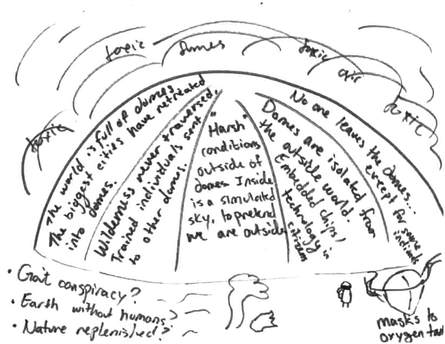 toxic
Domes
toxic
air
toxic
toxic
The world is full of domes.
The biggest cities have retreated
into domes.
Wilderness never traversed.
Trained individuals sent
to other domes.
"Harsh"
conditions
outside of
domes. Inside
is a simulated
sky, to pretend
we are outside
Domes are isolated from
the outside world.
Embedded chips/
technology in
No one leaves the domes...
except for some
• Gov't conspiracy?
• Earth without humans?
• Nature replenished?
masks to
oxygen